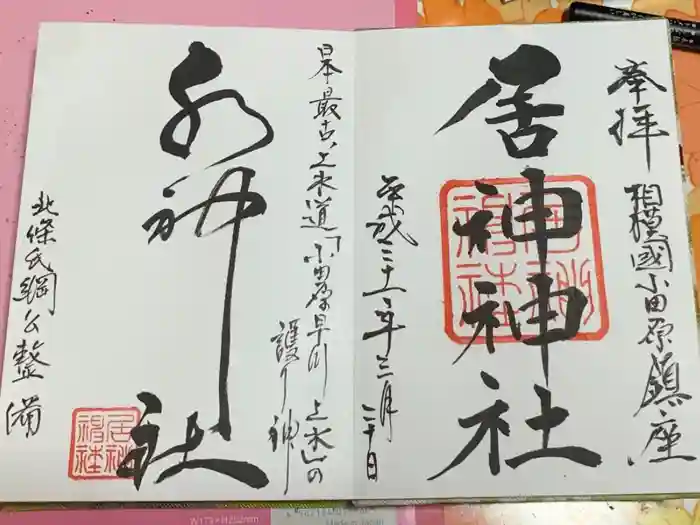 奉拝
相模國小田原鎮座
居神神社
平成三十一年三月二十日
日本最古上水道「小田原早川上水」の
護り神
水神社
北條氏綱公整備
居神
神社